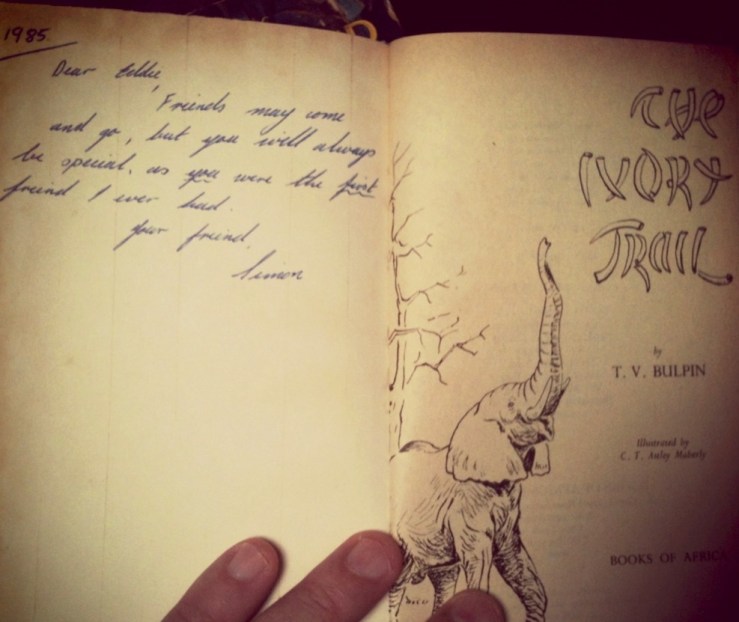 1985
Dear Eddie,
Freinds may come
and go, but you will always
be special, as you were the first
freind I ever had.
Your freind,
Simon
THE
IVORY
TRAIL
by
T. V. BULPIN
Illustrated by
C. T. Astley Maberly
BOOKS OF AFRICA